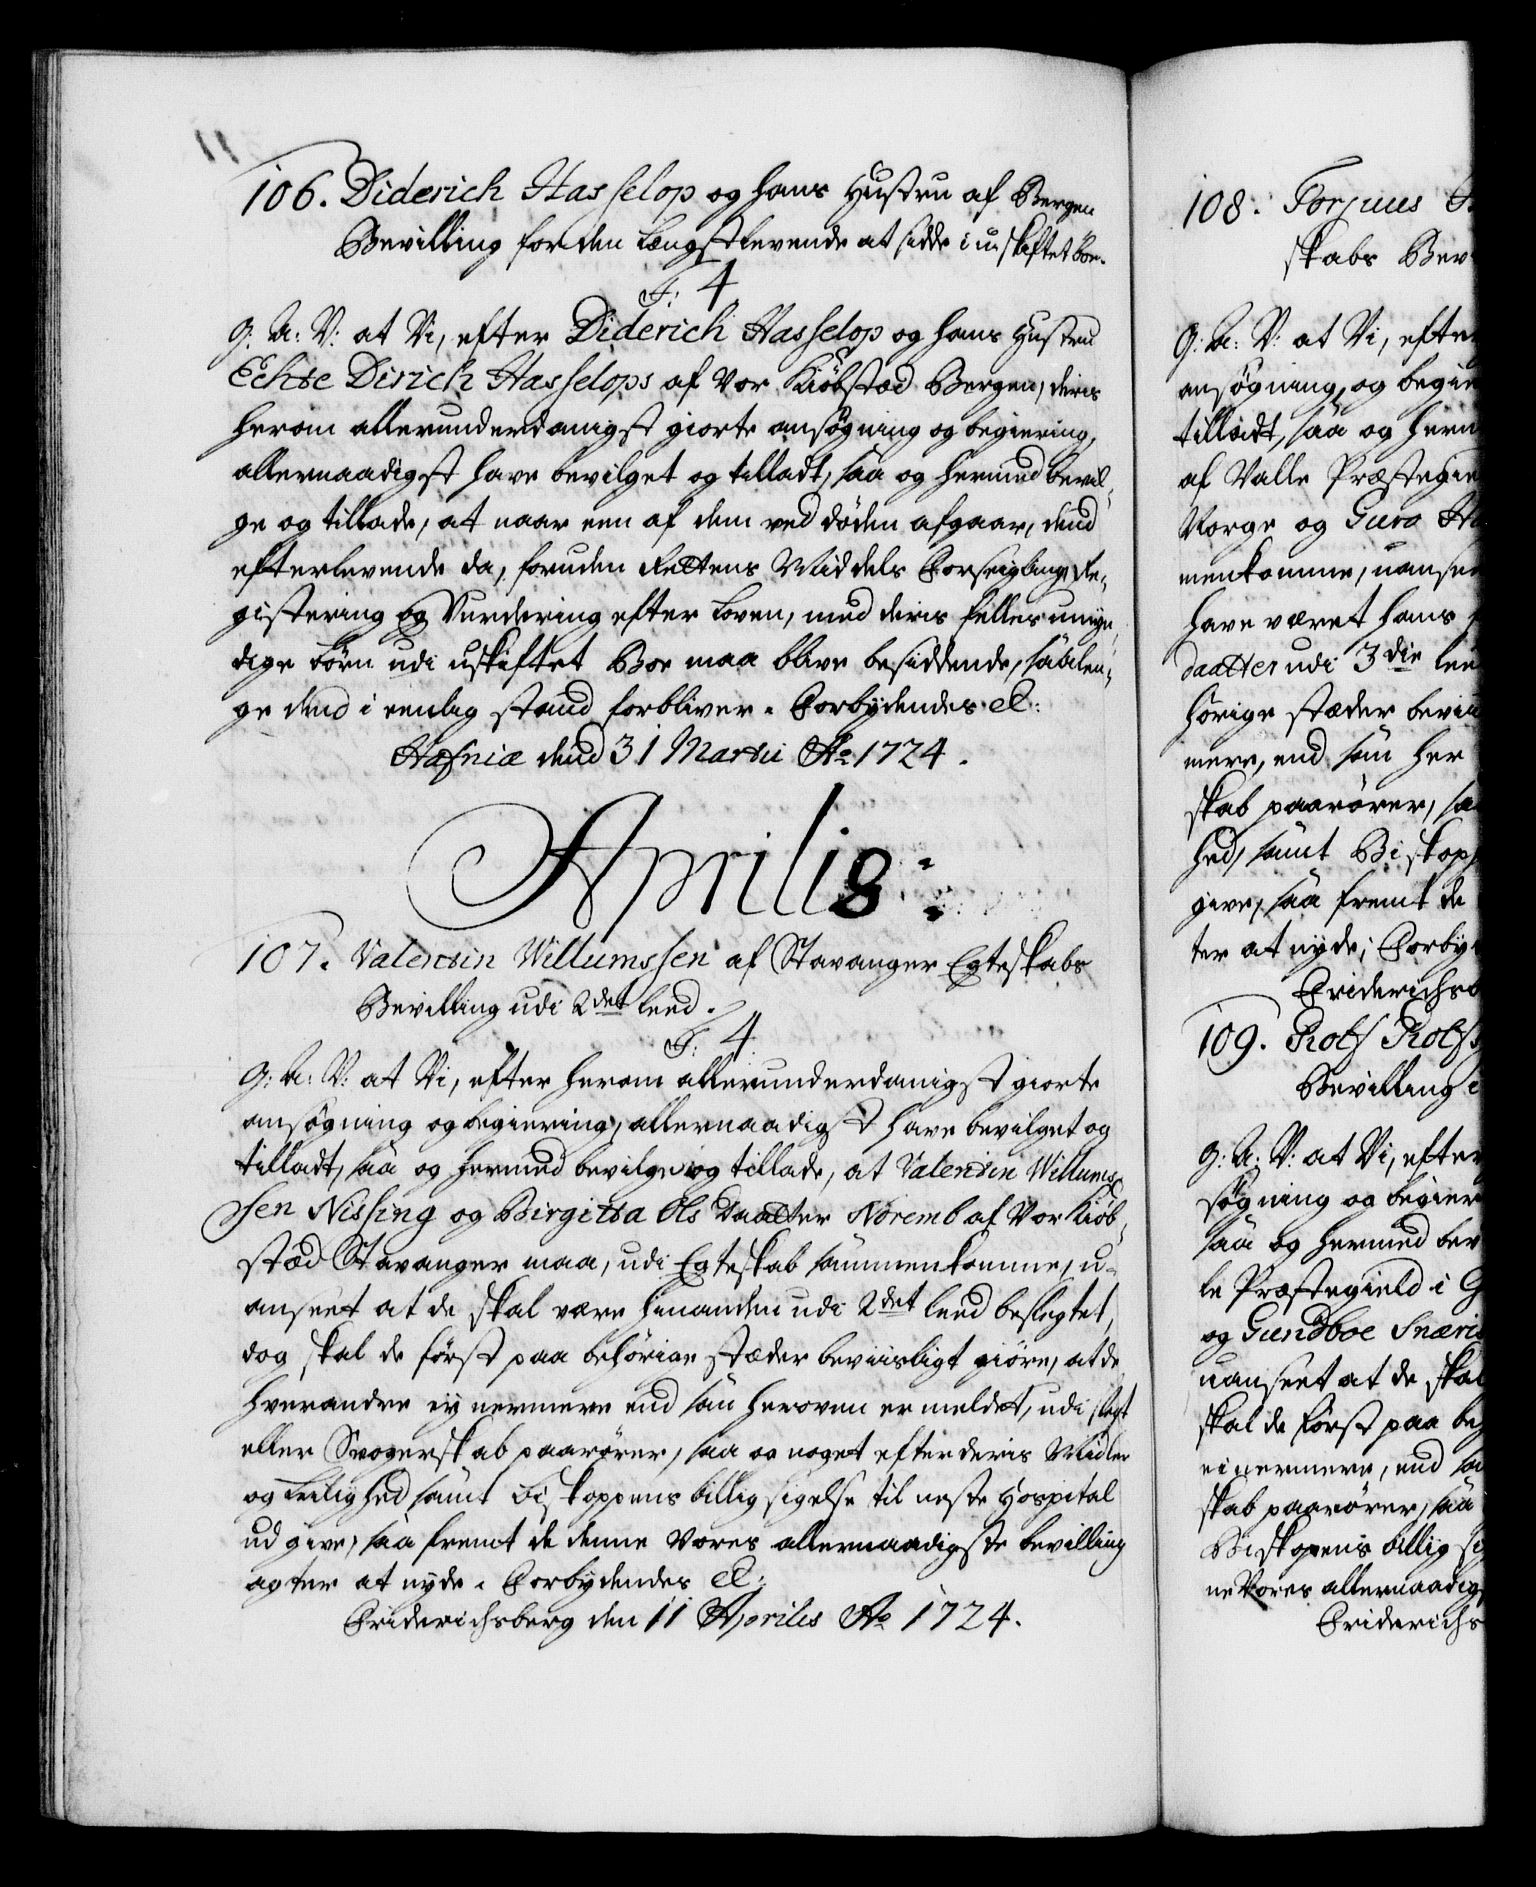 106. Diderich Hasselop og hans Hustru af Bergen
Bevilling for den Længstlevende at sidde i u-skiftet Boe.
F: 4
G: A: V: at Vi, efter Diderich Hasselop og hans Hustru
Echte Dirich Hasselops af Vor Kiøbstæd Bergen, deris
herom allerunderdanigst giorte ansøgning og begiering,
allernaadigst have bevilget og tilladt, saa og hermed bevil-
ge og tillade, at naar een af dem ved døden afgaar, dend
efterlevende da, foruden Rettens Middels Forseigling, Re-
gistering og Vurdering efter Loven, med deris felles umyn-
dige Børn udi uskiftet Boe maa blive besiddende, saalen-
ge dend i eenlig stand forbliver. Forbydendes etc:
Hafniæ dend 31 Martii Ao 1724.
Aprilis:
107. Valentin Willumssen af Stavanger Egteskabs
Bevilling udi 2det leed.
F: 4
G: A: V: at Vi, efter herom allerunderdanigst giorte
ansøgning og begiering, allernaadigst have bevilget og
tilladt, saa og hermed bevilge og tillade, at Valentin Willums-
sen Nissing og Birgitta Ols Daatter Noremb af Vor Kiøb-
stæd Stavanger maa, udi Egteskab sammenkomme, u-
anseet at de skal være hinanden udi 2det leed beslegtet,
dog skal de først paa behørige stæder beviisligt giøre, at de
hverandre ey nermere end som heroven er meldet, udi slegt
eller Svogerskab paarører, saa og noget efter deris Midler
og Leilighed samt Biskoppens billig sigelse til neste Hospital
ud give, saa fremt de denne Vores allernaadigste bevilling
agter at nyde. Forbydendes etc:
Friderichsberg den 11 Aprilis Ao 1724.
108. Torjuus
skabs Bev
G: A: V: at Vi, efte
ansøgning, og begie
tilladt, saa og herm
af Valle Præstegie
Norge og Guro
menkomme, uansee
have været hans
daatter udi 3die lee
hørige stæder bevii
mere, end som her
skab paarører, sa
hed, samt Biskopp
give, saa fremt de
ter at nyde; Forby
Friderichsb
109. Rolf Rolfs
Bevilling
G: A: V: at Vi, efter
søgning og begier
saa og hermed bev
le Præstegield i
og Gundboe Snæris
uanseet at de skal
skal de først paa be
ei nermere, end so
skab paarører, saa
Biskopens billig si
ne Vores allernaadig
Friderichs